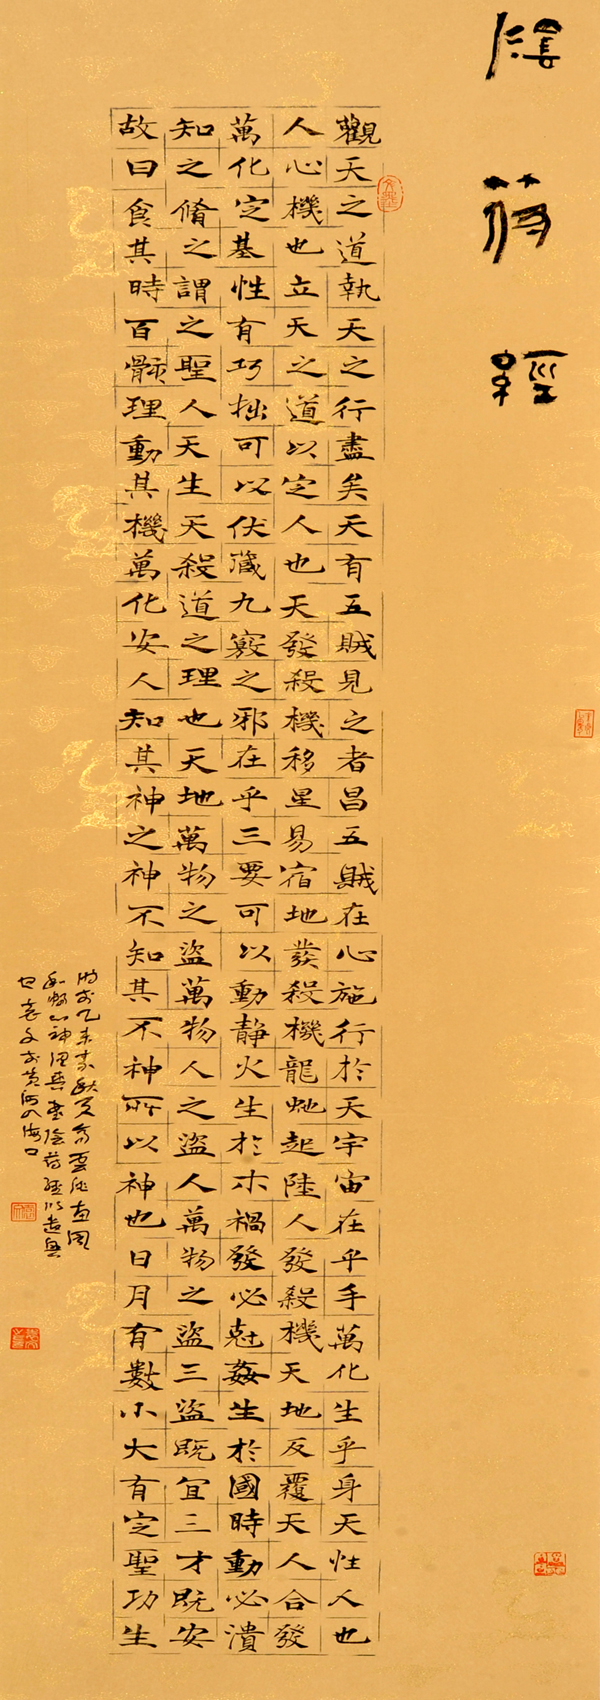 陰苻經
觀天之道執天之行盡矣天有五賊見之者昌五賊在心施行於天宇宙在乎手萬化生乎身天性人也
人心機也立天之道以定人也天發殺機移星易宿地發殺機龍虵起陸人發殺機天地反覆天人合發
萬化定基性有巧拙可以伏藏九竅之邪在乎三要可以動靜火生於木禍發必尅姦生於國時動必潰
知之脩之謂之聖人天生天殺道之理也天地萬物之盜萬物人之盜人萬物之盜三盜既宜三才既安
故曰食其時百骸理動其機萬化安人知其神之神不知其不神所以神也日月有數小大有定聖功生
乙未
書陰苻經
於黃河入海口